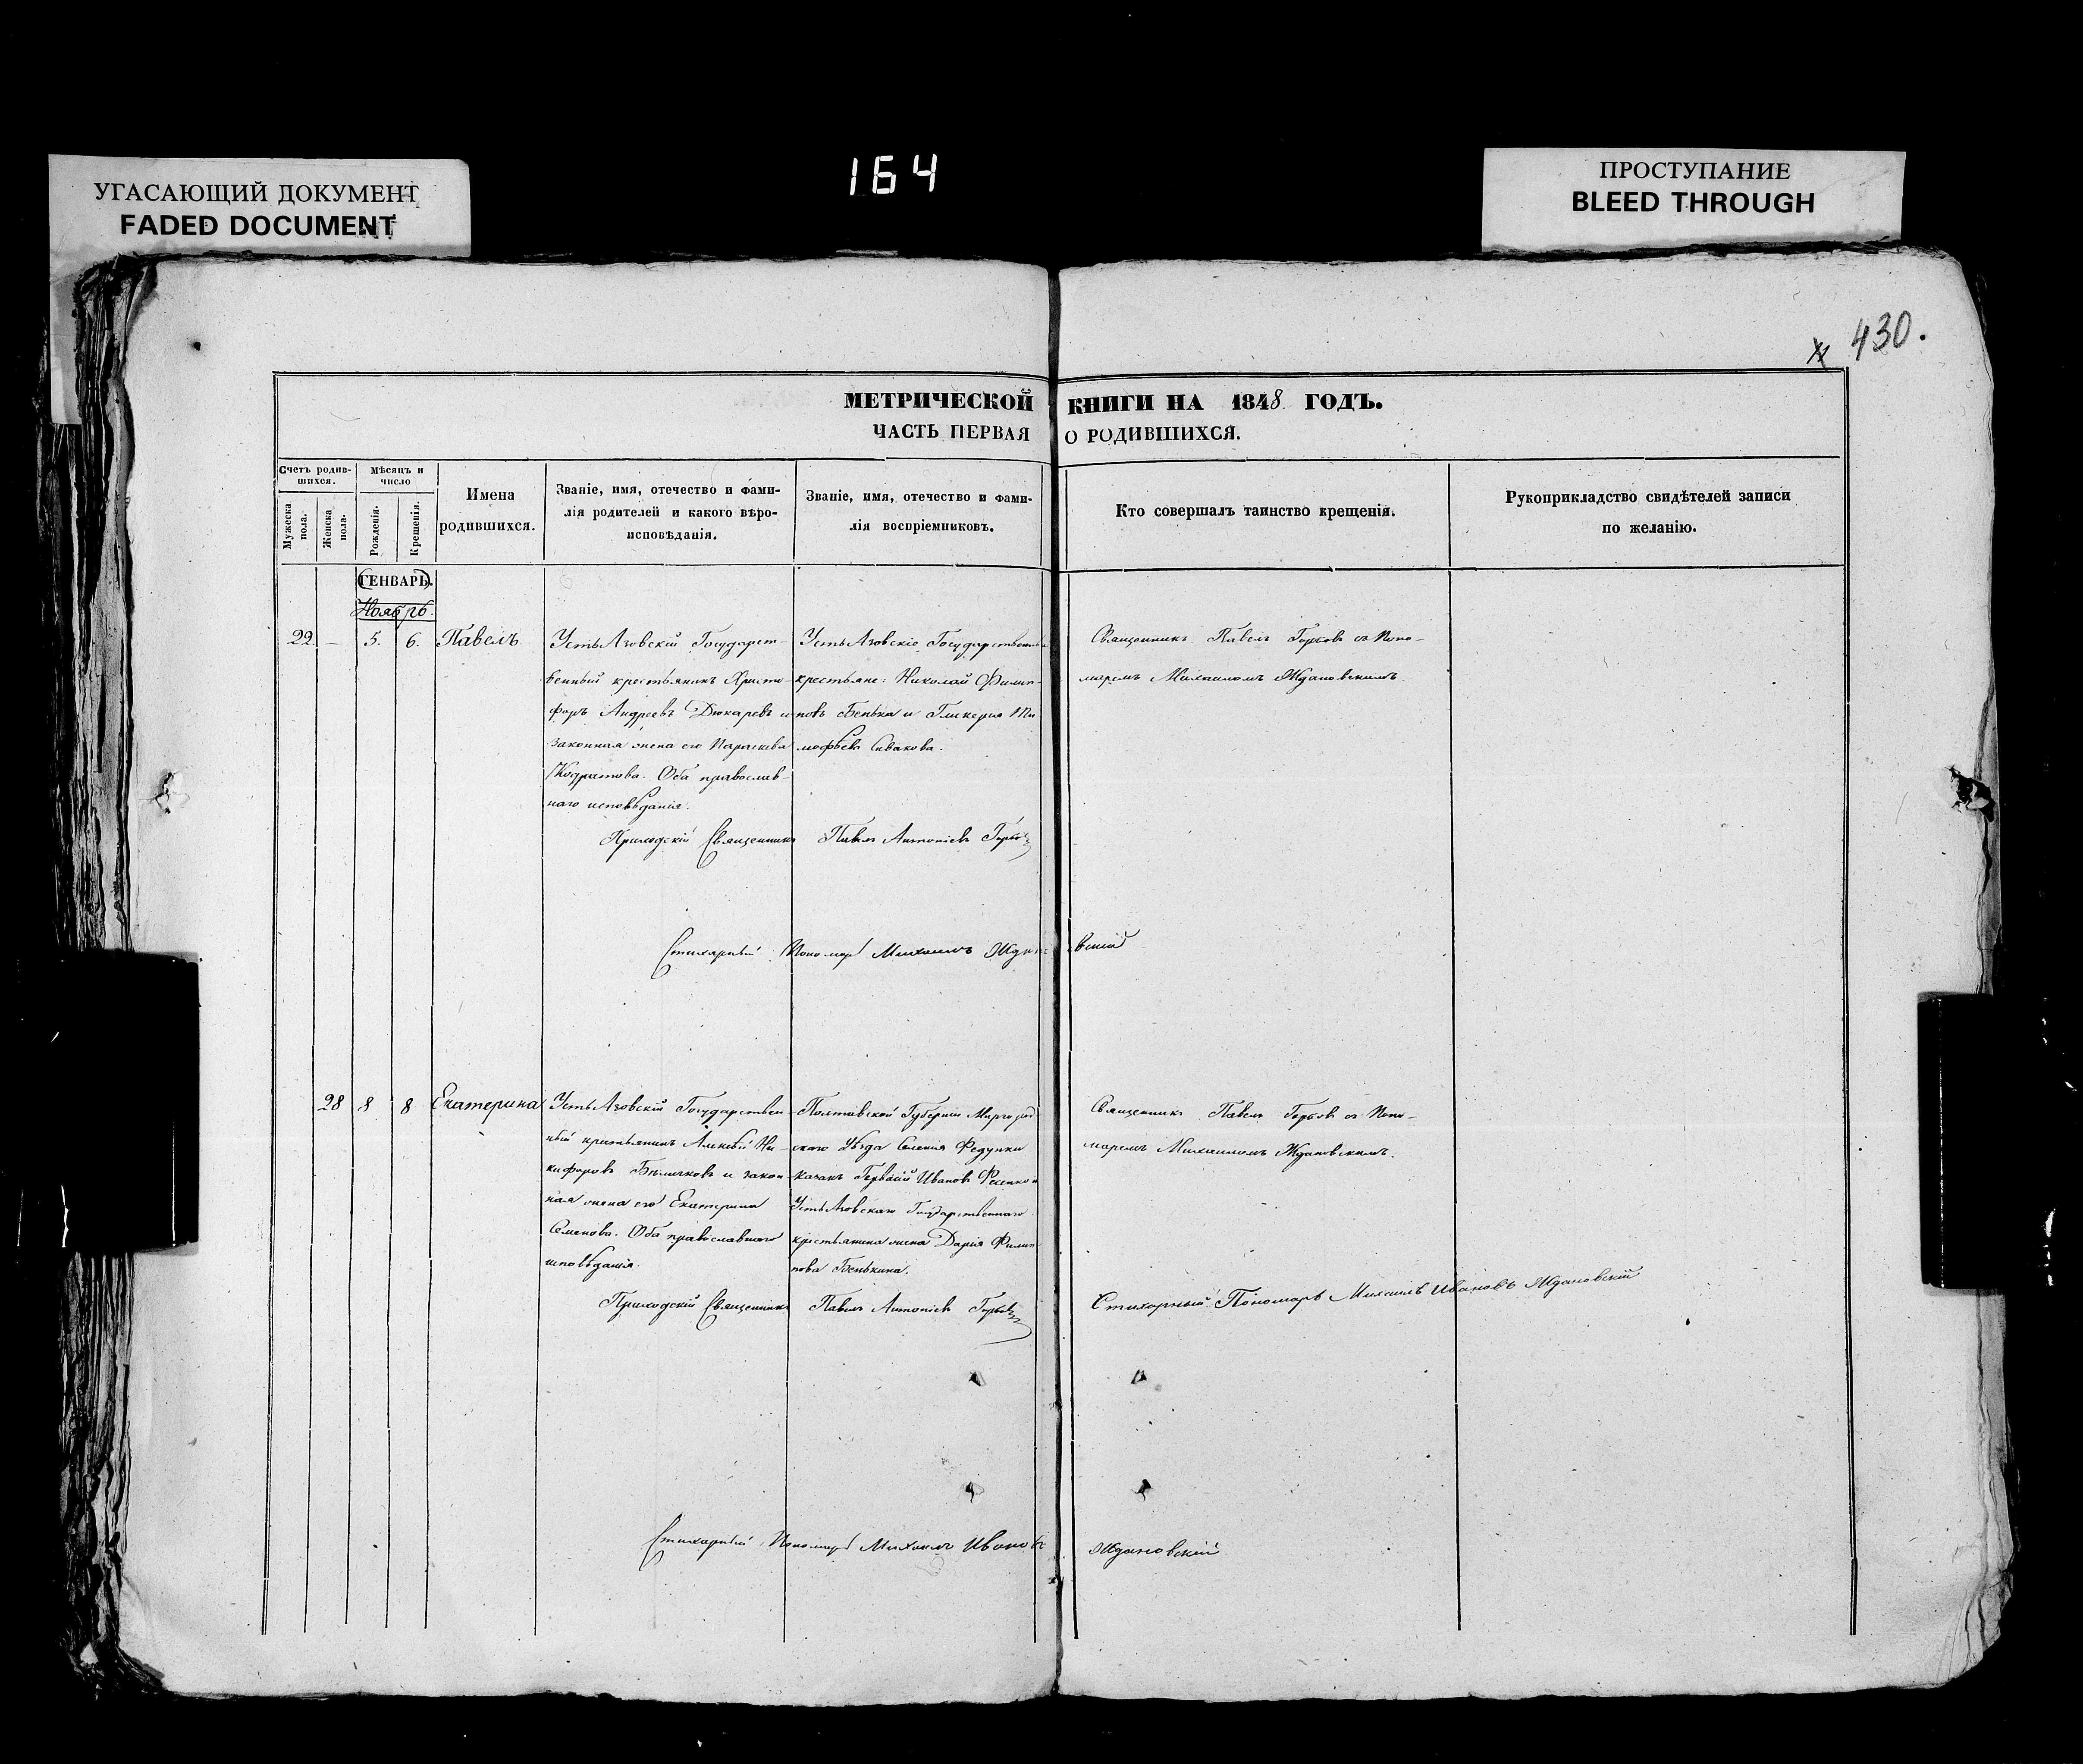 164
УГАСАЮЩИЙ ДОКУМЕНТ
FADED DOCUMENT
ПРОСТУПАНИЕ
BLEED THROUGH
430.
МЕТРИЧЕСКОЙ КНИГИ НА 1848 ГОДЪ.
ЧАСТЬ ПЕРВАЯ О РОДИВШИХСЯ.
Счетъ родив-
шихся.
Мужеска
пола.
Женска
пола.
Мѣсяцъ и
число
Рожденія.
Крещенія.
Имена
родившихся.
Званіе, имя, отечество и фами-
лія родителей и какого вѣро-
исповѣданія.
Званіе, имя, отечество и фами-
лія воспріемниковъ.
Кто совершалъ таинство крещенія.
Рукоприкладство свидѣтелей записи
по желанію.
ГЕНВАРЬ.
Ноябрь.
22. — 5. 6. Павелъ
Усть Азовскій Государст-
венный крестьянинъ Христо-
форъ Андреевъ Дюкаревъ и
законная жена его Параскева
Кодратова. Оба православ-
наго исповѣданія.
Усть Азовскіе Государственные
крестьяне: Николай Филип-
повъ Бенька и Гликерія Ти
мофѣева Сивакова.
Священникъ Павелъ Горбовъ съ Поно-
маремъ Михаиломъ Ждановскимъ.
Приходскій Священникъ Павелъ Антоніевъ Горбовъ
Стихарный Пономарь Михаилъ Ждановскій
28 8 8 Екатерина
Усть Азовскій Государствен-
ный крестьянинъ Алексѣй Ни-
кифоровъ и закон-
ная жена его Екатерина
Семенова. Оба православнаго
исповѣданія.
Полтавской Губерніи Миргород
скаго Уѣзда Селенія Федунки
казакъ Иванов
Усть Азовскаго Государственнаго
крестьянина жена Дарія Филип
пова Бенькина.
Священникъ Павелъ Горбовъ съ Поно-
маремъ Михаиломъ Ждановскимъ.
Приходскій Священникъ Павелъ Антоніевъ Горбовъ
Стихарный Пономарь Михаилъ Ивановъ Ждановскій
Стихарный Пономарь Михаилъ Ивановъ Ждановскій